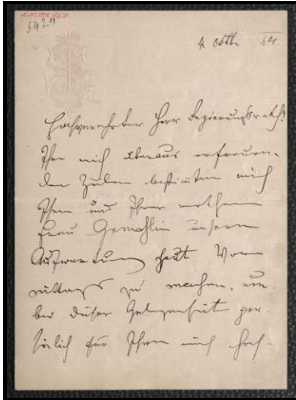 5424
4. Oktbr 84
Hochverehrter Herr Regierungsrath!
Ihre mich überaus erfreuen-
den Zeilen bestimmten mich
Ihnen und Ihrer werthen
Frau Gemahlin unsere
Aufwartung heut Vor-
mittags zu machen, um
bei dieser Gelegenheit per-
sönlich für Ihren mich hoch-